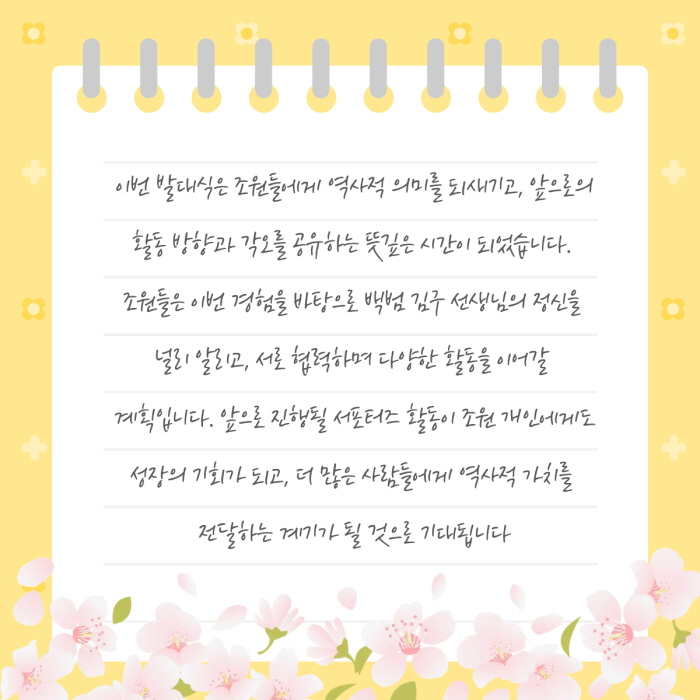 이번 발대식은 조원들에게 역사적 의미를 되새기고, 앞으로의
활동 방향과 각오를 공유하는 뜻깊은 시간이 되었습니다.
조원들은 이번 경험을 바탕으로 백범 김구 선생님의 정신을
널리 알리고, 서로 협력하며 다양한 활동을 이어갈
계획입니다. 앞으로 진행될 서포터즈 활동이 조원 개인에게도
성장의 기회가 되고, 더 많은 사람들에게 역사적 가치를
전달하는 계기가 될 것으로 기대됩니다